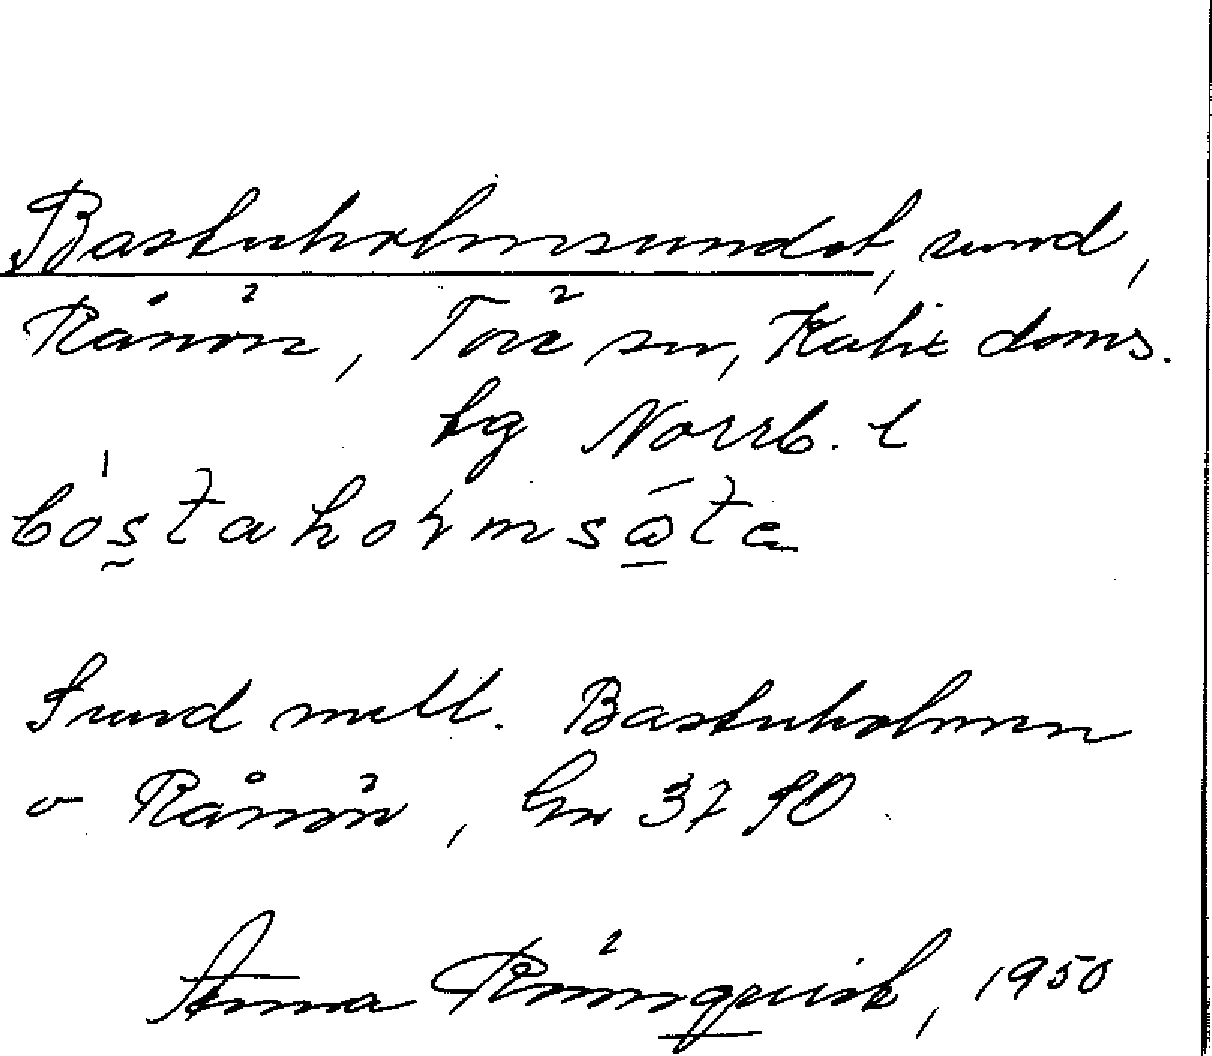 Bastuholmsundet, sund,
Rånön, Töre sn, Kalix doms.
tg Norrb. l
Sund mell. Bastuholmen
o Rånön, hn 37 SO
Anna Rönnqvist, 1950